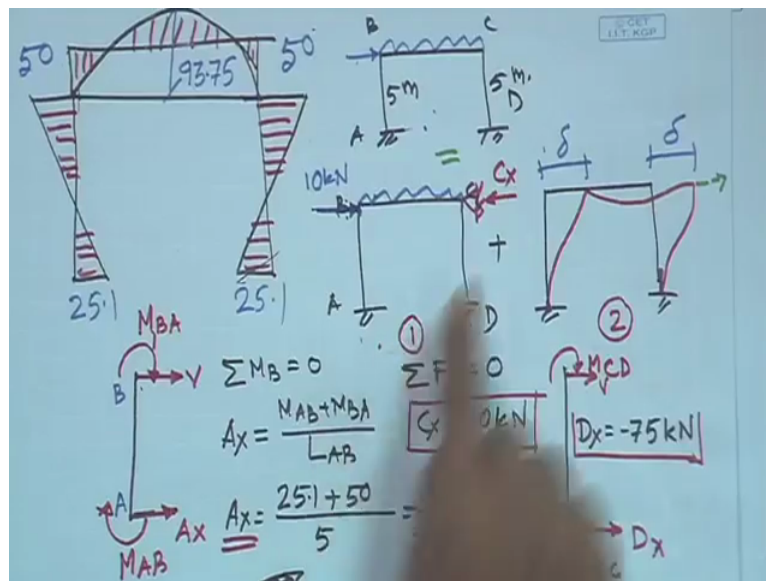 © CET
I.I.T. KGP
50
93.75
50
25.1
25.1
B C
5 m
5 m.
A D
=
10kN
B
Cx
A D
1
+
δ δ
2
MBA
B V
A Ax
MAB
ΣMB = 0
Ax = MAB + MBA / LAB
Ax = 25.1 + 50 / 5 =
ΣF = 0
Cx 0kN
MCD
V
Dx = -75 kN
Dx